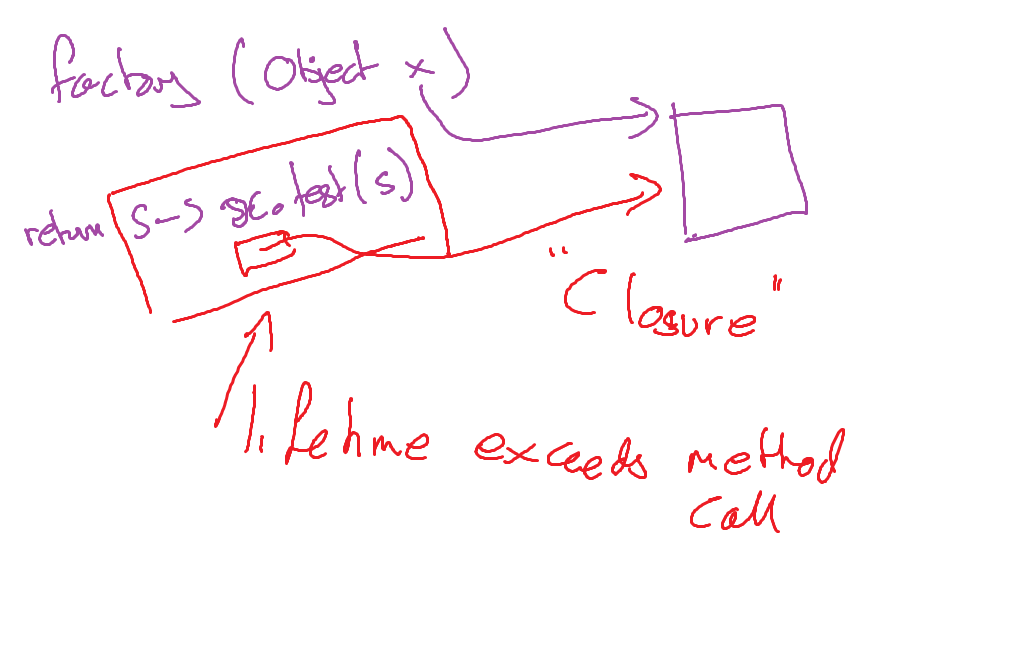 factory (Object x)
return s -> x.test(s)
"Closure"
lifetime exceeds method
call